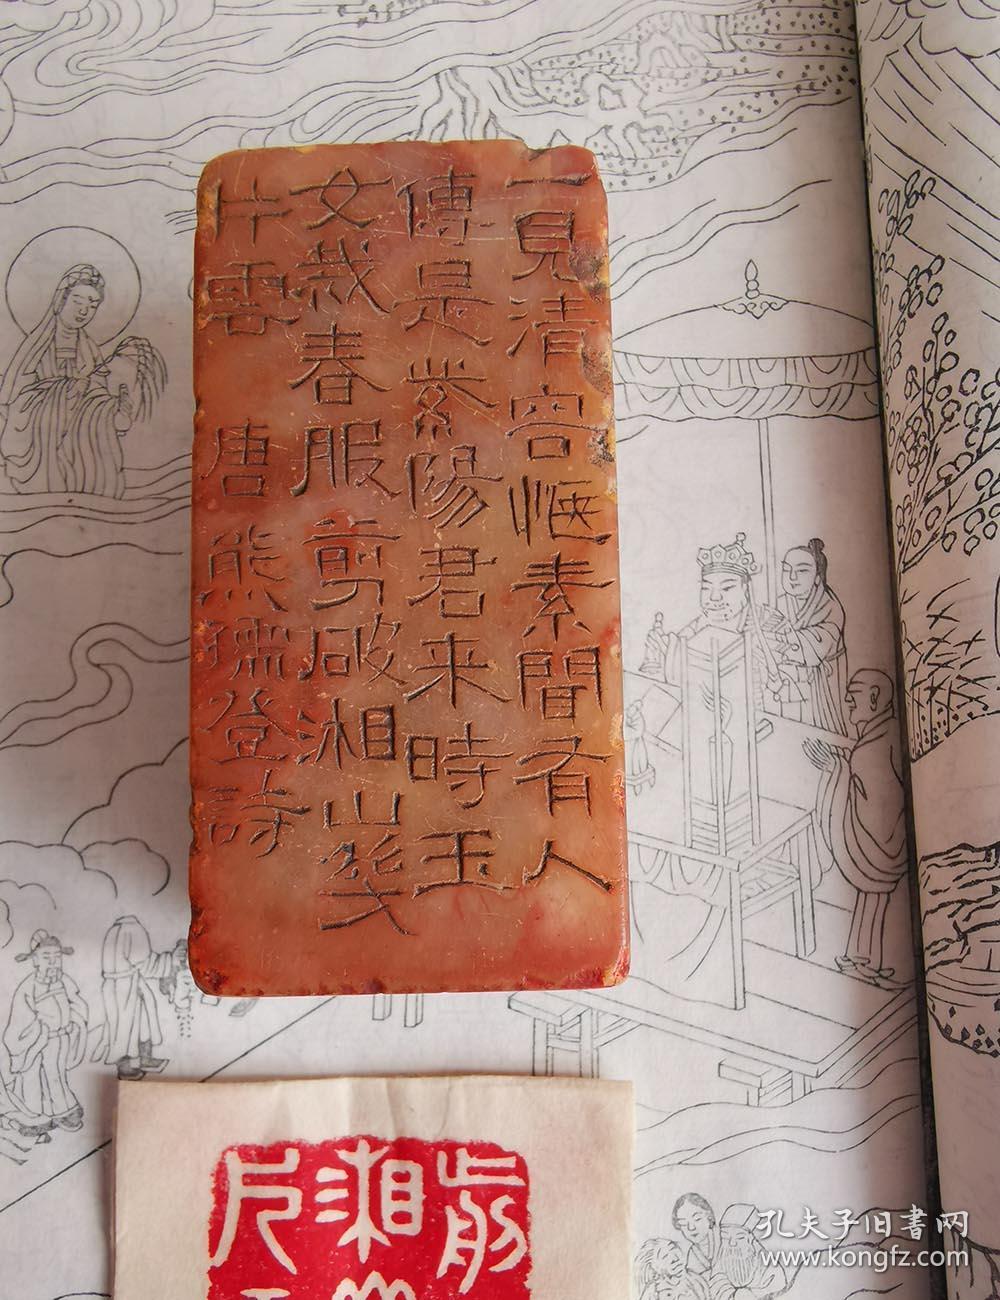 一見清容愜素聞有人
傳是紫陽君来時玉
女裁春服剪破湘山幾
片雲 唐熊孺登詩
剪
湘山
片
孔夫子旧書网
www.kongfz.com